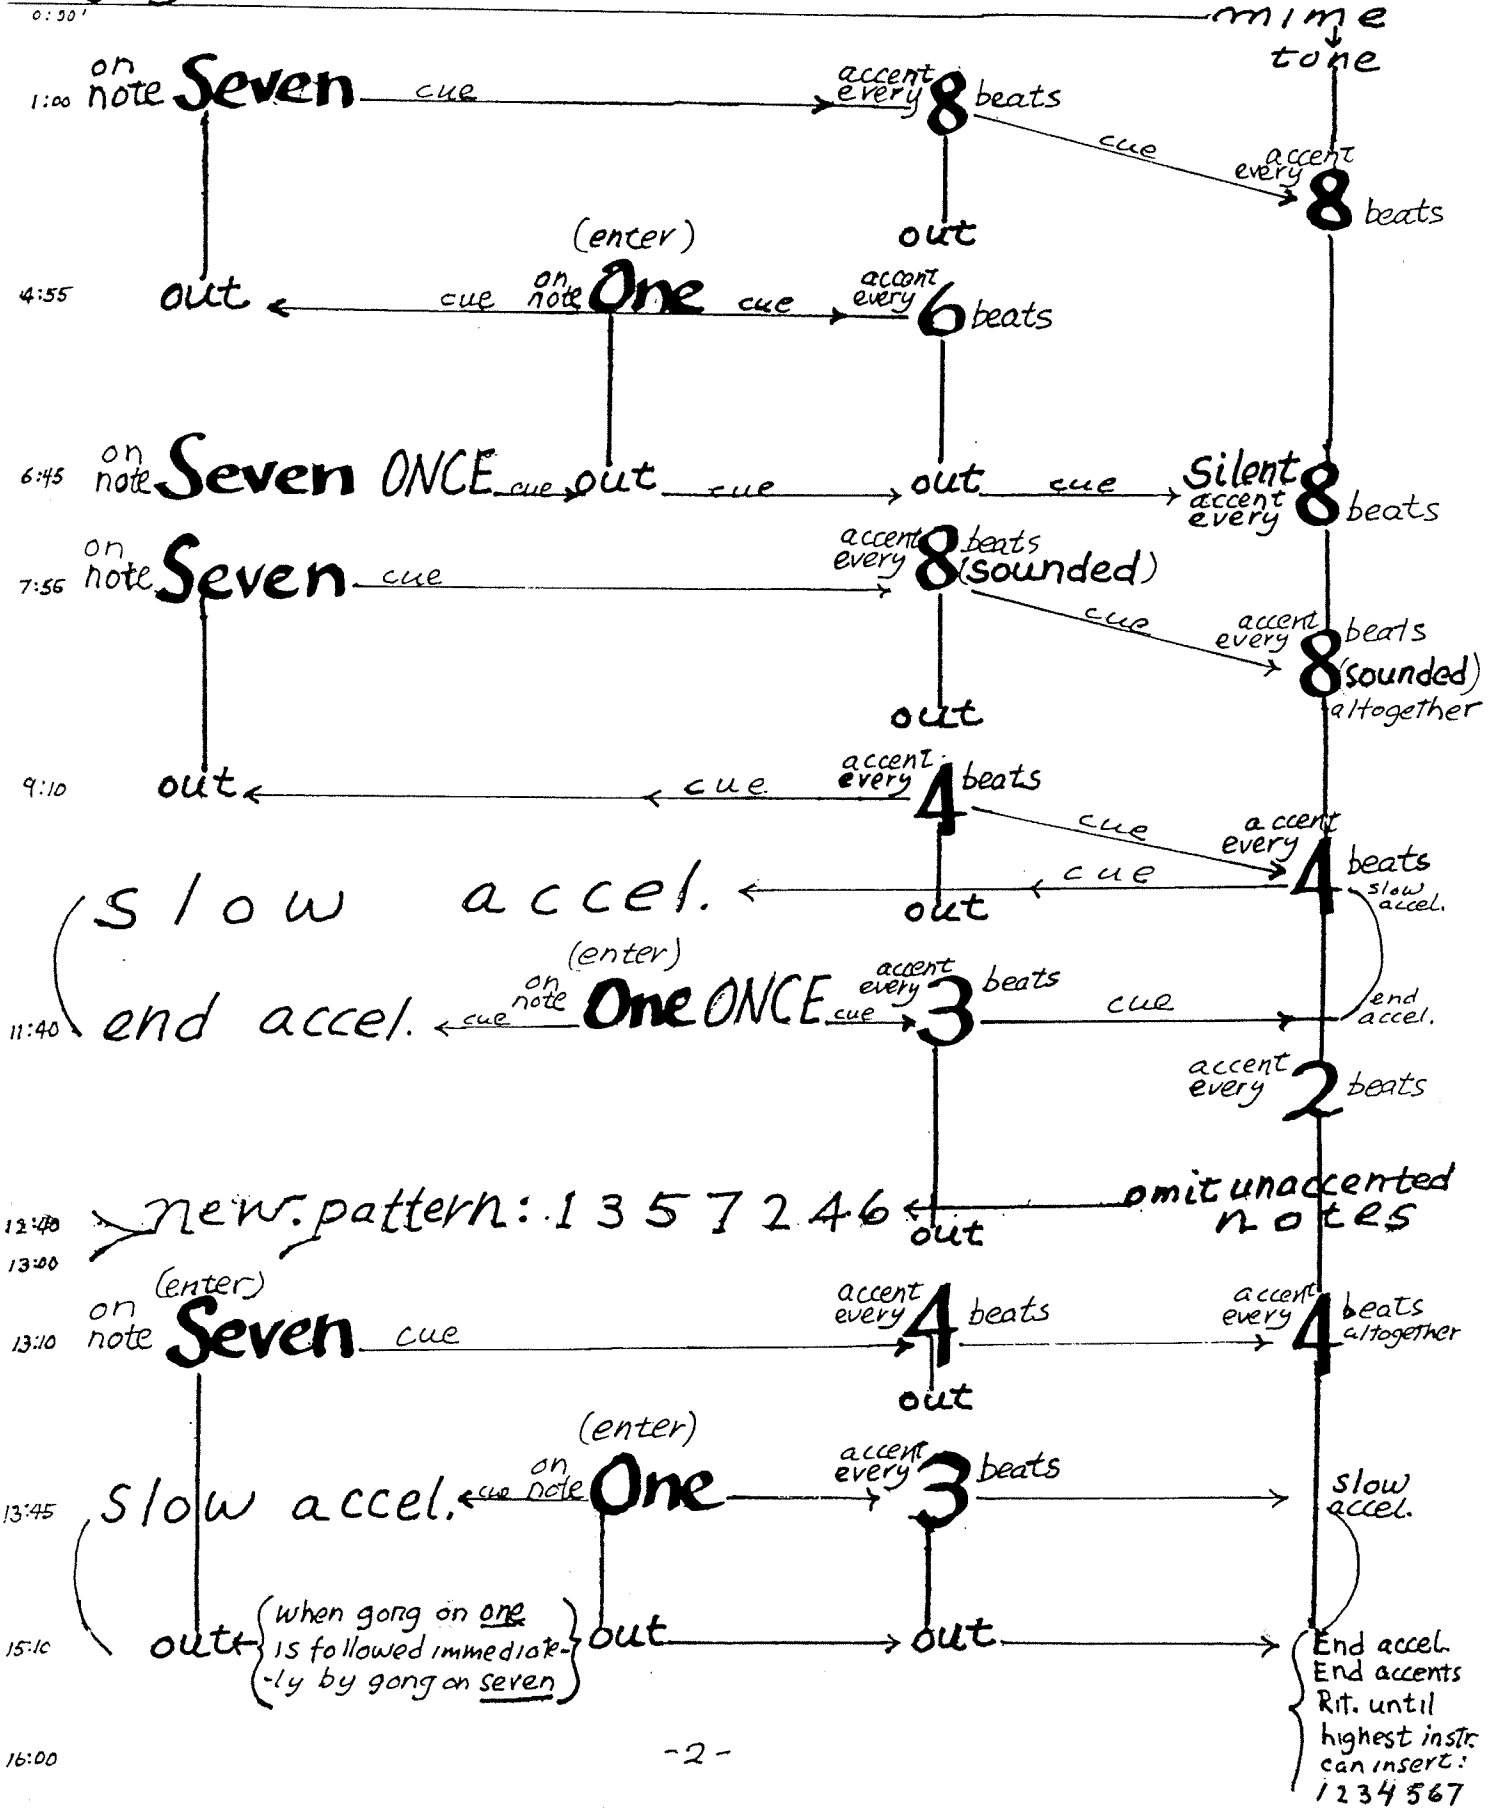 0:30
mime
tone
on
note Seven cue accent every 8 beats
1:00
cue accent every 8 beats
out
(enter)
4:55 out cue on note One cue accent every 6 beats
6:45 on note Seven ONCE cue out cue out cue Silent accent every 8 beats
7:55 on note Seven cue accent every 8 beats (sounded)
cue accent every 8 beats (sounded) altogether
out
9:10 out cue accent every 4 beats
cue accent every 4 beats
slow accel. cue slow accel.
out
(enter)
11:40 end accel. cue on note One ONCE cue accent every 3 beats cue end accel.
accent every 2 beats
12:40 new pattern: 1 3 5 7 2 4 6 omit unaccented notes
out
13:00
(enter)
13:10 on note Seven cue accent every 4 beats accent every 4 beats altogether
out
(enter)
13:45 slow accel. cue on note One accent every 3 beats slow accel.
15:10 out
when gong on one
is followed immediate-
-ly by gong on seven
out out
End accel.
End accents
Rit. until
highest instr.
can insert:
1 2 3 4 5 6 7
16:00
-2-